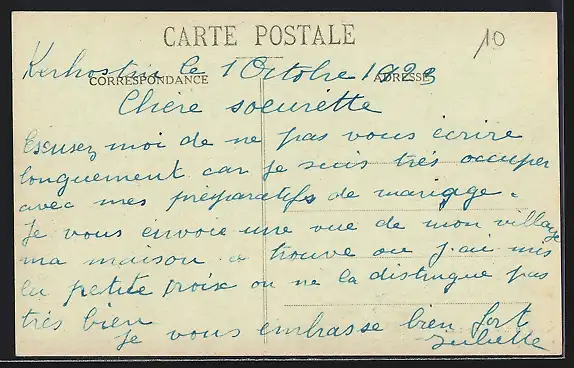 CARTE POSTALE
10
Kerhostin le 1 Octobre 1923
CORRESPONDANCE
ADRESSE
Chère soeurette
Escusez moi de ne pas vous écrire
longuement car je suis très occuper
avec mes préparatifs de mariage.
Je vous envoie une vue de mon village
ma maison a trouve ou j'au mis
la petite croix on ne la distingue pas
très bien
Je vous embrasse bien fort
Juliette